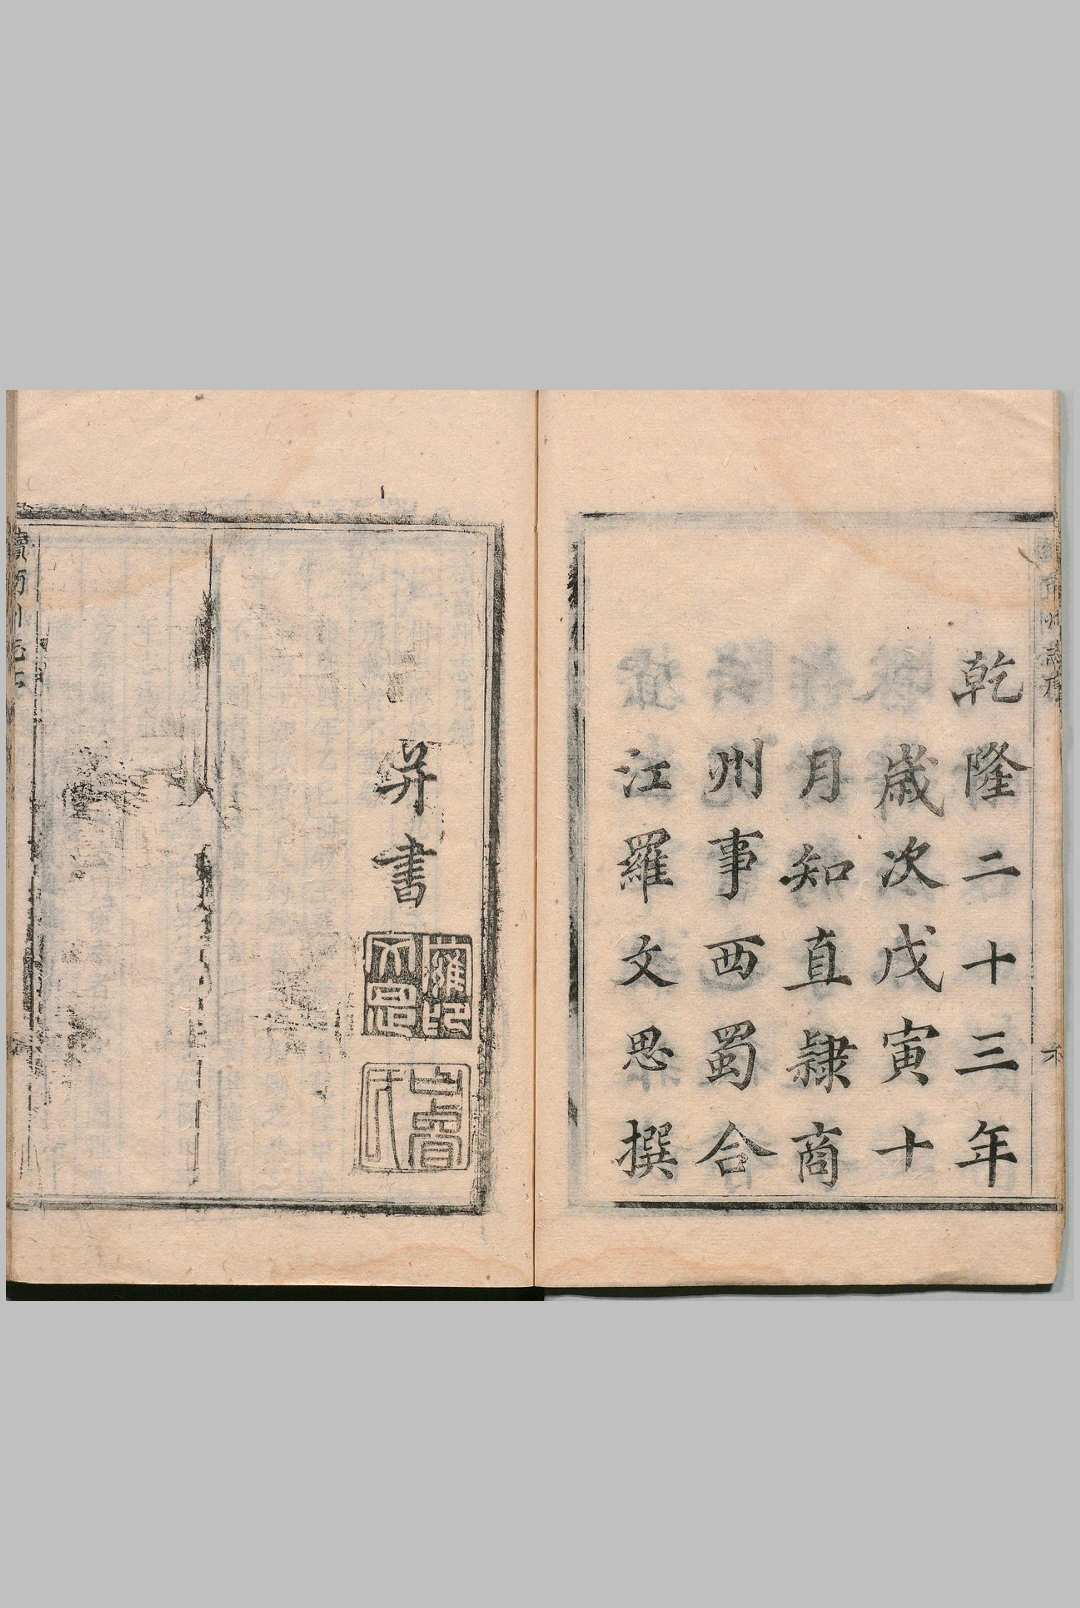 乾隆二十三年
歲次戊寅十
月知直隸商
州事西蜀合
江羅文思撰
并書
羅印文思